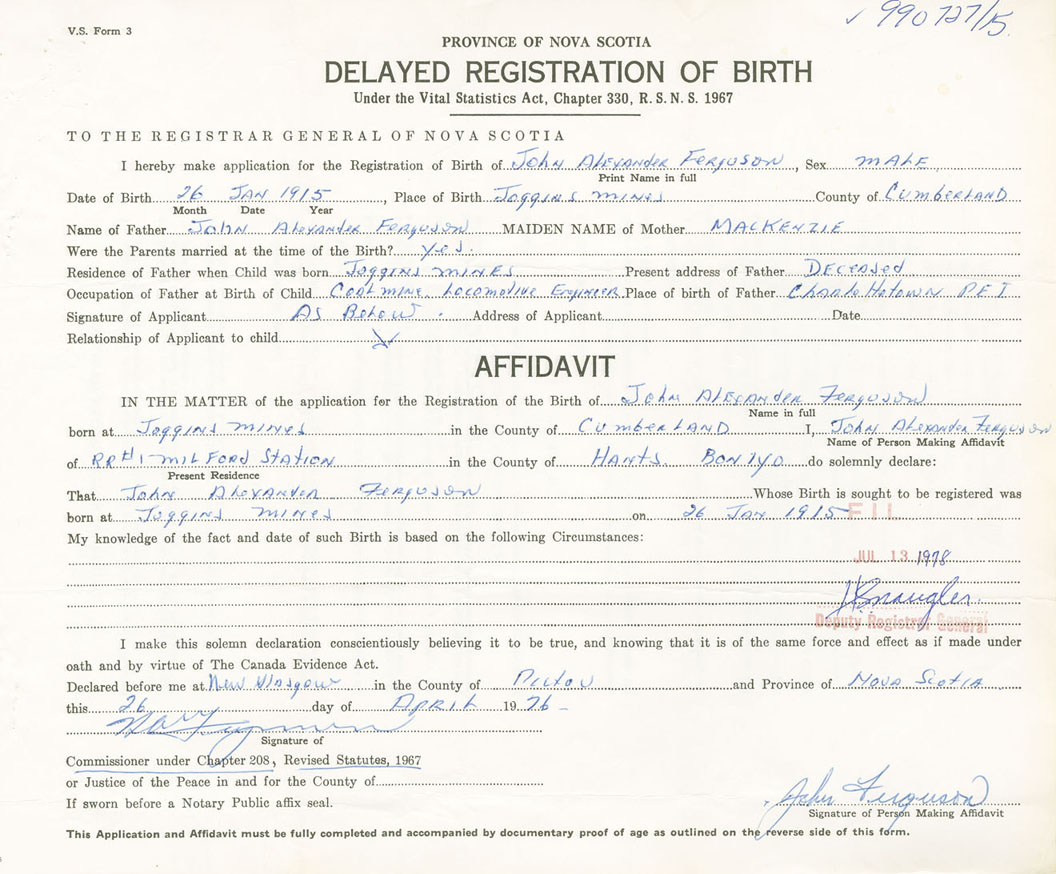 V.S. Form 3
✓ 990727/15.
PROVINCE OF NOVA SCOTIA
DELAYED REGISTRATION OF BIRTH
Under the Vital Statistics Act, Chapter 330, R. S. N. S. 1967
TO THE REGISTRAR GENERAL OF NOVA SCOTIA
I hereby make application for the Registration of Birth of John Alexander Ferguson, Sex MALE
Print Name in full
Date of Birth 26 JAN 1915, Place of Birth Joggins mines County of Cumberland
Month Date Year
Name of Father John Alexander Ferguson MAIDEN NAME of Mother MACKENZIE
Were the Parents married at the time of the Birth? yes.
Residence of Father when Child was born Joggins mines Present address of Father Deceased
Occupation of Father at Birth of Child Coal mine Locomotive Engineer Place of birth of Father Charlottetown PEI
Signature of Applicant As Below. Address of Applicant Date
Relationship of Applicant to child
AFFIDAVIT
IN THE MATTER of the application for the Registration of the Birth of John Alexander Ferguson
Name in full
born at Joggins mines in the County of Cumberland I, John Alexander Ferguson
Name of Person Making Affidavit
of RR#1 Milford Station in the County of Hants. BON 1YO do solemnly declare:
Present Residence
That John Alexander Ferguson Whose Birth is sought to be registered was
born at Joggins mines on 26 Jan 1915 FIL
My knowledge of the fact and date of such Birth is based on the following Circumstances:
JUL 13 1978
Deputy Registrar General
I make this solemn declaration conscientiously believing it to be true, and knowing that it is of the same force and effect as if made under
oath and by virtue of The Canada Evidence Act.
Declared before me at New Glasgow in the County of Pictou and Province of Nova Scotia
this 26 day of April 1976 -
Signature of
Commissioner under Chapter 208, Revised Statutes, 1967
or Justice of the Peace in and for the County of
If sworn before a Notary Public affix seal.
John Ferguson
Signature of Person Making Affidavit
This Application and Affidavit must be fully completed and accompanied by documentary proof of age as outlined on the reverse side of this form.